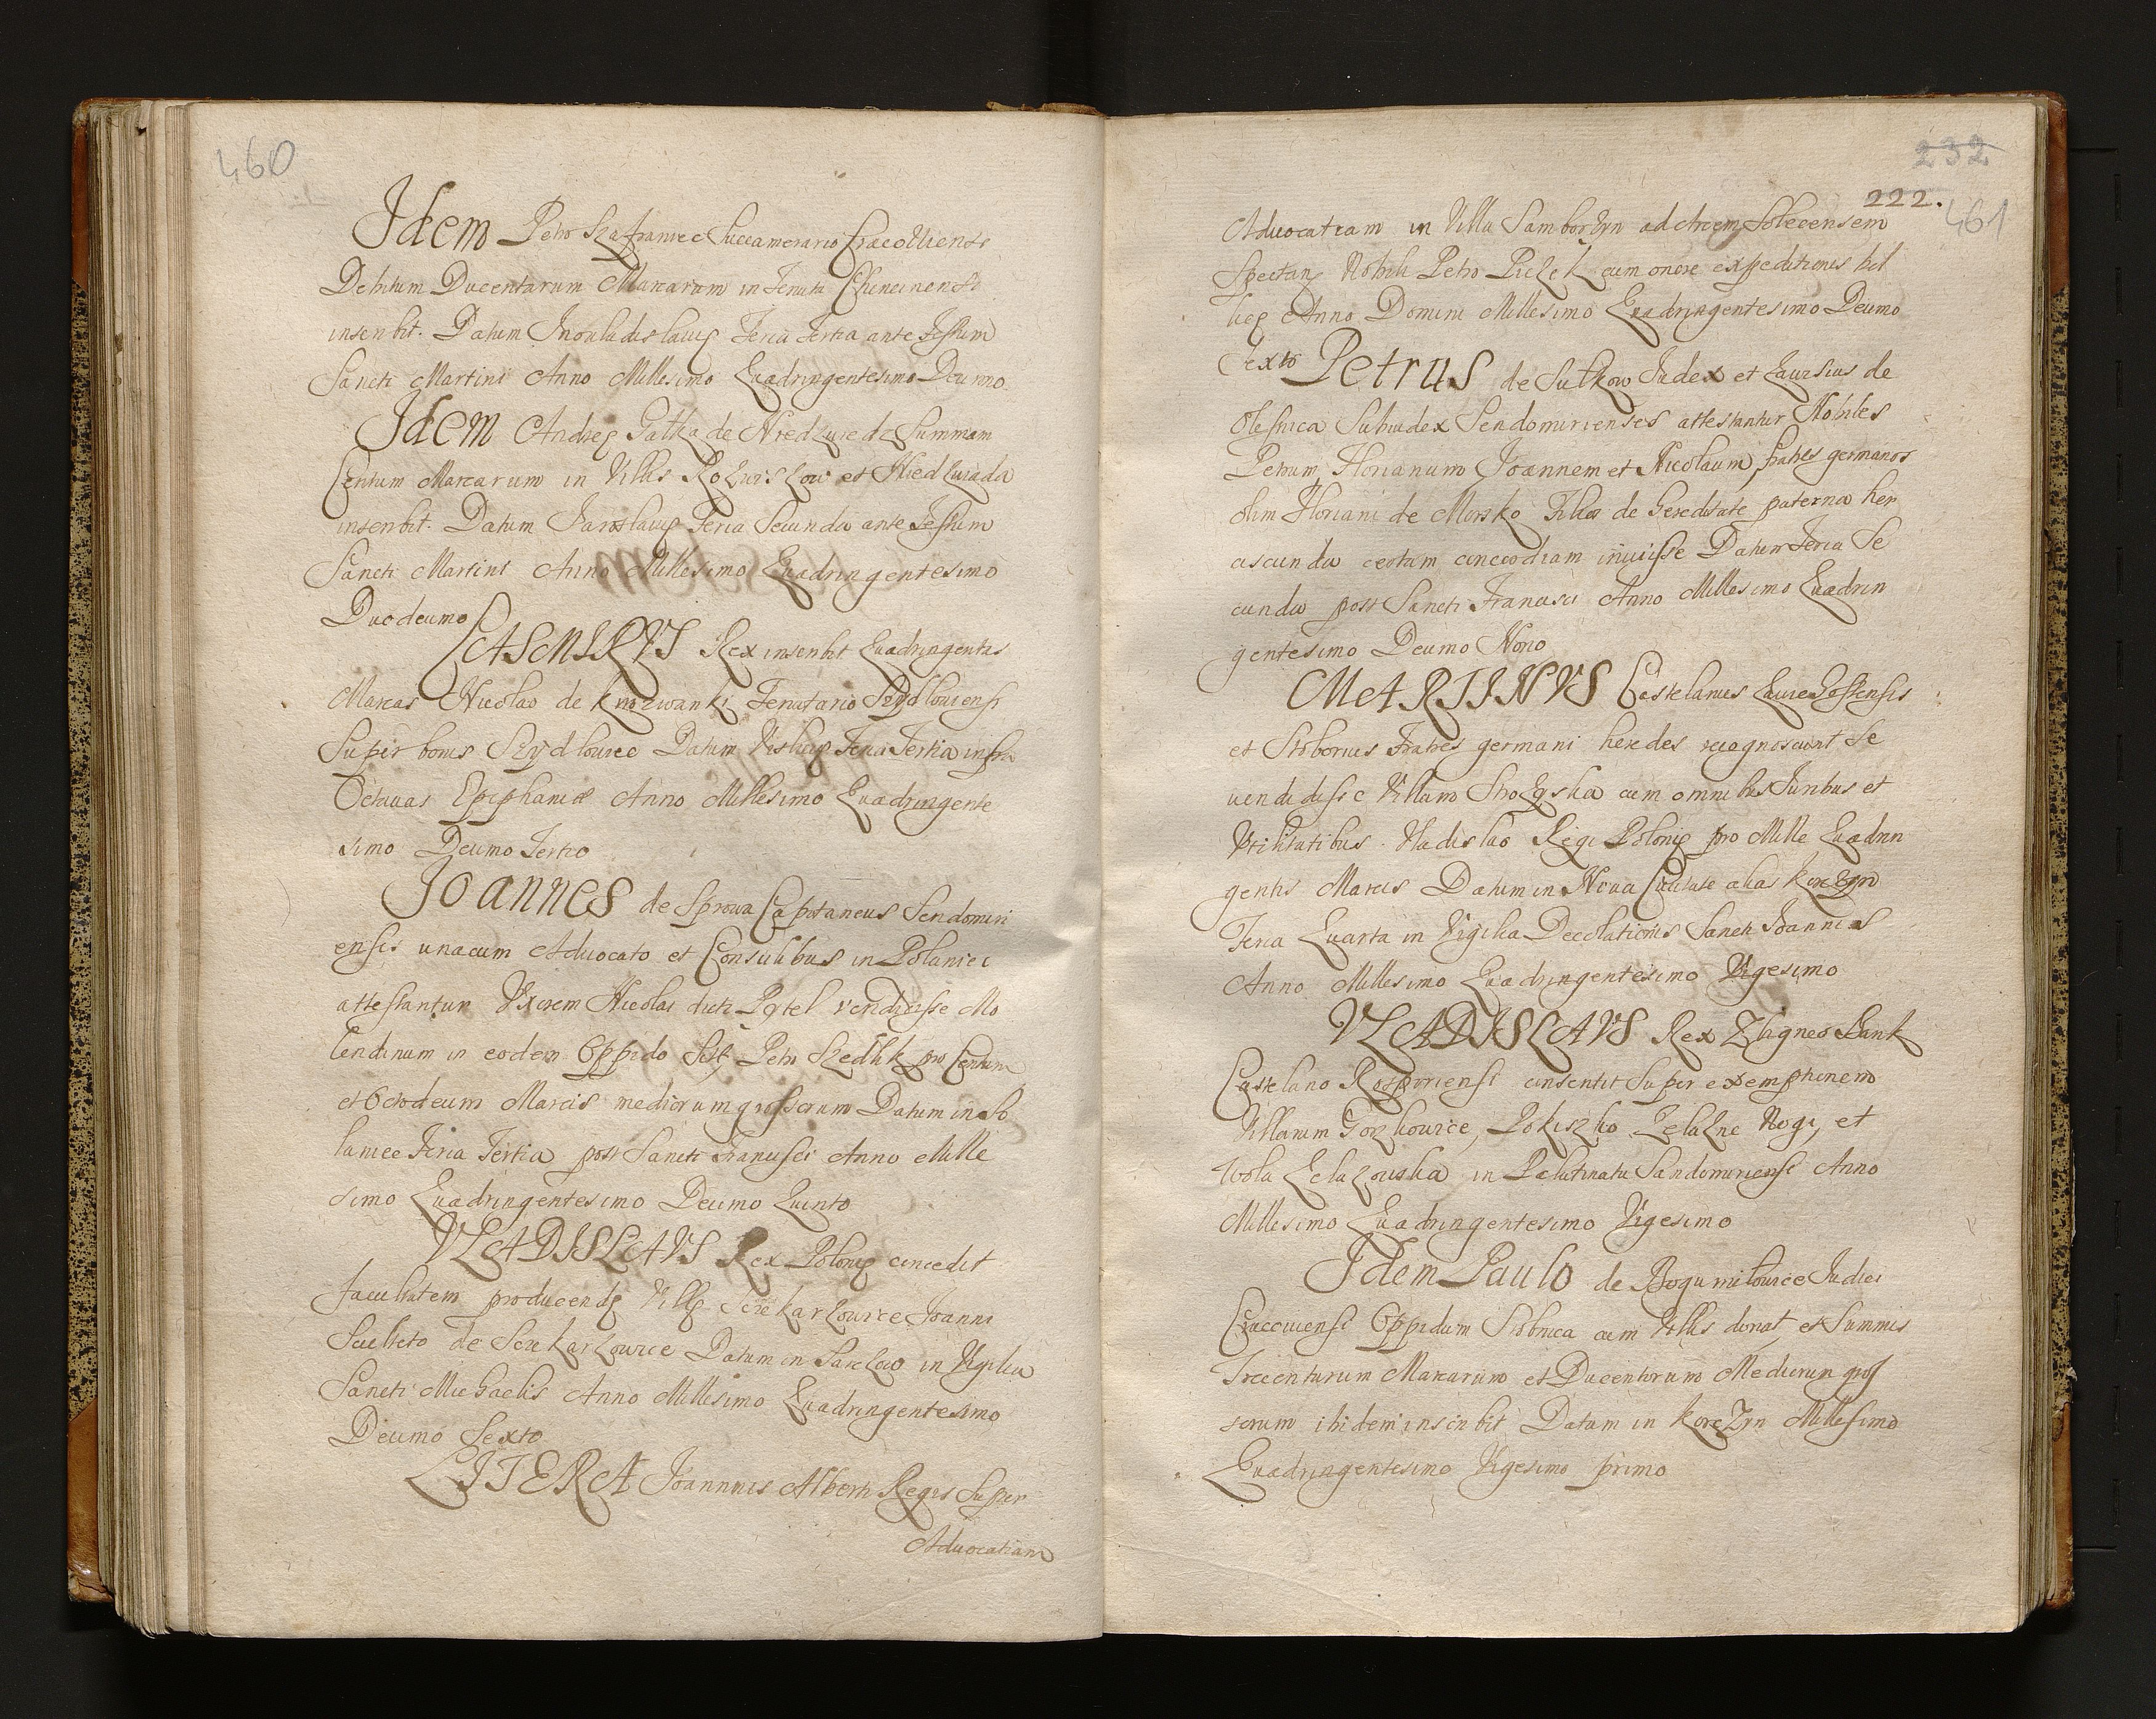 460
Idem Petro Szafraniec Succamerario Cracoviensi
Debitum Ducentarum Marcarum in Tenuta Chencinensi
inscribit. Datum Inowladislavię Feria Tertia ante Festum
Sancti Martini Anno Millesimo Quadringentesimo Decimo
Idem Andreę Gatka de Niedzwiedz Summam
Centum Marcarum in Villis et Niedzwiada
inscribit. Datum Jaroslavię Feria Secunda ante Festum
Sancti Martini Anno Millesimo Quadringentesimo
Duodecimo
CASIMIRVS Rex inscribit Quadringentas
Marcas Nicolao de Tenutario Szydloviensi
Super bonis Szydlowiec Datum Vislicię Feria Tertia infra
Octavas Epiphaniæ Anno Millesimo Quadringente
simo Decimo Tertio
Joannes de Sprowa Capitaneus Sendomiri
ensis unacum Advocato et Consulibus in Polaniec
attestantur Uxorem Nicolai dicti Pytel vendidisse Mo
lendinum in eodem Oppido Petro Szedlik pro Centum
et Octodecim Marcis mediorum grossorum Datum in Po
laniec Feria Tertia post Sancti Francisci Anno Mille
simo Quadringentesimo Decimo Quinto
VLADISLAVS Rex Polonię concedit
facultatem producendę Villę Joanni
Sculteto de Datum in in Vigilia
Sancti Michaelis Anno Millesimo Quadringentesimo
Decimo Sexto
LITERA Joannis Alberti Regis Super
Advocatiam
232
222.
461
Advocatiam in Villa Samborzyn ad Arcem Solecensem
Spectan Nobili Petro cum onere expeditionis bel
licę Anno Domini Millesimo Quadringentesimo Decimo
Sexto Petrus de Sulkow Iudex et Laursius de
Olesnica Subiudex Sendomirienses attestantur Nobiles
Petrum, Florianum Joannem et Nicolaum, fratres germanos
olim Floriani de Morsko Filios de hereditate paterna her
ciscunda certam concordiam inivisse Datum Feria Se
cunda post Sancti Francisci Anno Millesimo Quadrin
gentesimo Decimo Nono
MARTINVS Castelanus
et Stiborius Fratres germani heredes recognoscunt Se
vendidisse Villam cum omnibus Iuribus et
Vtilitatibus Vladislao Regi Polonię pro Mille Quadrin
gentis Marcis Datum in Nova Civitate alias Korczyn
Feria Quarta in Vigilia Decolationis Sancti Joannis
Anno Millesimo Quadringentesimo Vigesimo
VLADISLAVS Rex Zbigneo Bank
Castelano consentit Super exemptionem
Villarum Gorzkowice, Zelazne Nogi, et
Wola Zelazowska in Palatinatu Sandomiriensi Anno
Millesimo Quadringentesimo Vigesimo
Idem Paulo de Bogumilowice Iudici
Cracoviensi Oppidum Stobnica cum Villis donat, et Summis
Trecentarum Marcarum et Ducentorum Mediorum gros
sorum ibidem inscribit Datum in Korczyn Millesimo
Quadringentesimo Vigesimo primo